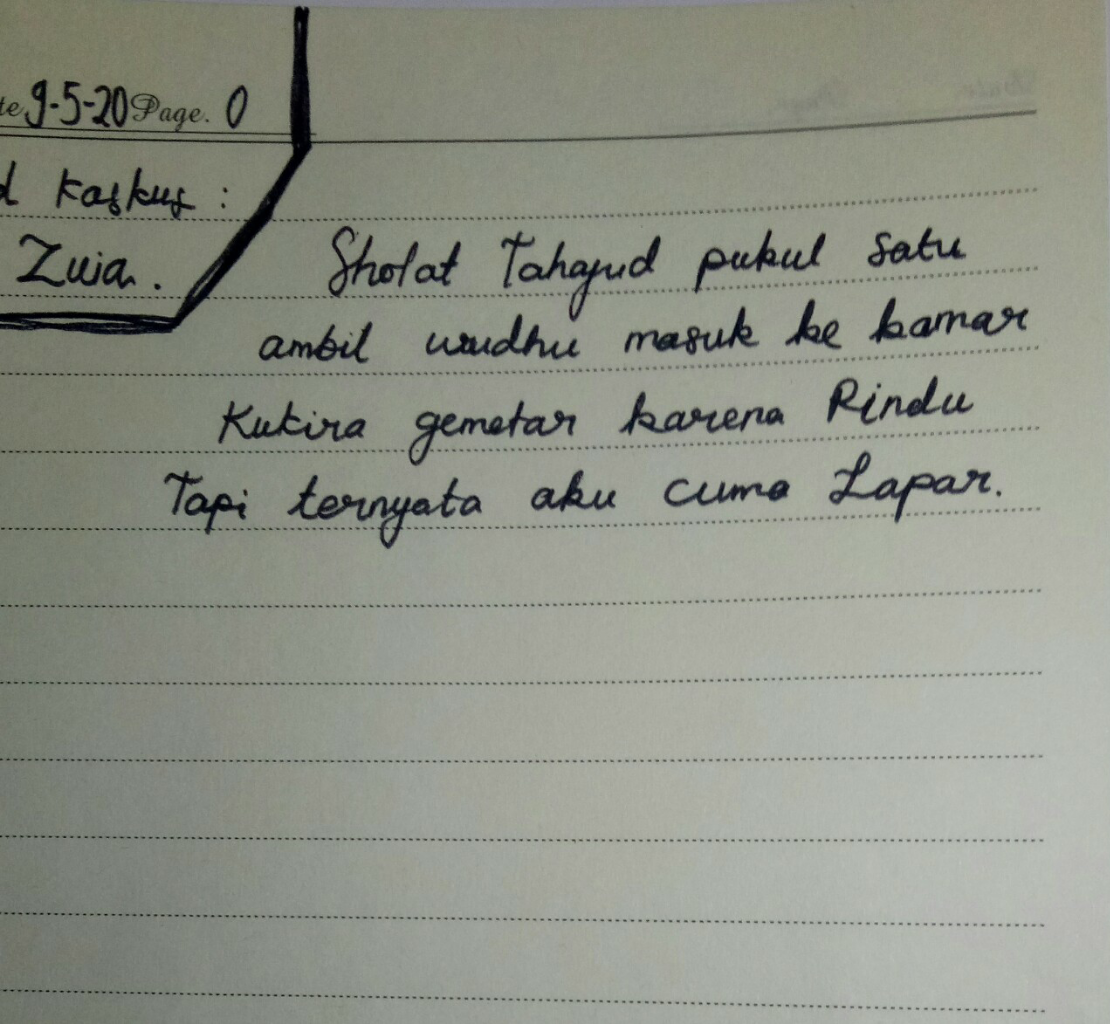 9-5-20 Page. 0
Kaskus :
Zuia.
Sholat Tahajud pukul satu
ambil wudhu masuk ke kamar
Kukira gemetar karena Rindu
Tapi ternyata aku cuma Lapar.